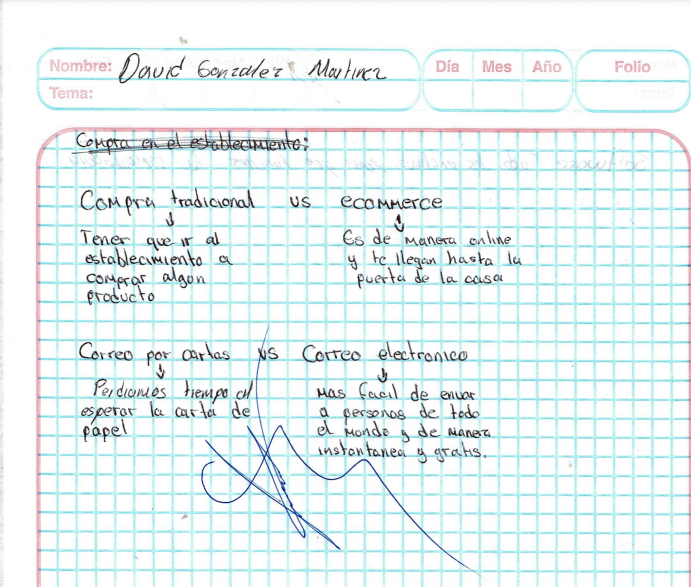 Nombre: David Gonzalez Martinez
Día Mes Año Folio
Tema:
Compra en el establecimiento:
Compra tradicional vs ecommerce
Tener que ir al
establecimiento a
comprar algun
producto
Es de manera online
y te llegan hasta la
puerta de la casa
Correo por cartas vs Correo electronico
Perdiamos tiempo al
esperar la carta de
papel
Mas facil de enviar
a personas de todo
el mundo y de manera
instantanea y gratis.